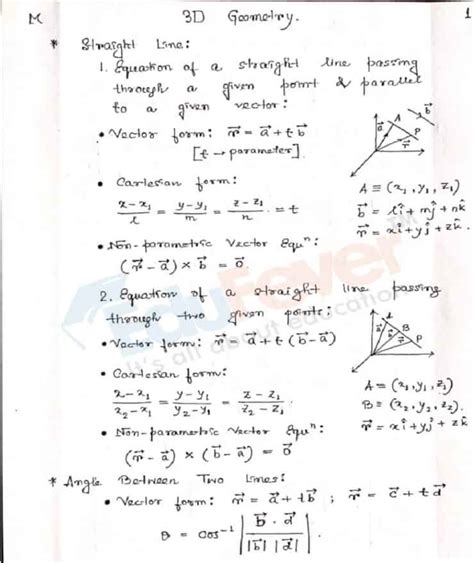 M 3D Geometry. 1
* Straight Line:
1. Equation of a straight line passing
through a given point & parallel
to a given vector:
• Vector form: r⃗ = a⃗ + t b⃗
[t → parameter].
A P b⃗ a⃗ r⃗
• Cartesian form:
(x - x₁)/l = (y - y₁)/m = (z - z₁)/n = t
A ≡ (x₁, y₁, z₁)
b⃗ = lî + mĵ + nk̂
r⃗ = xî + yĵ + zk̂.
• Non-parametric Vector Equⁿ:
(r⃗ - a⃗) × b⃗ = 0⃗.
EduFever™
It's all about education
2. Equation of a straight line passing
through two given points:
• Vector form: r⃗ = a⃗ + t (b⃗ - a⃗)
A B P a⃗ b⃗ r⃗
• Cartesian form:
(x - x₁)/(x₂ - x₁) = (y - y₁)/(y₂ - y₁) = (z - z₁)/(z₂ - z₁)
A ≡ (x₁, y₁, z₁)
B ≡ (x₂, y₂, z₂).
r⃗ = xî + yĵ + zk̂
• Non-parametric Vector Equⁿ:
(r⃗ - a⃗) × (b⃗ - a⃗) = 0⃗
* Angle Between Two Lines:
• Vector form: r⃗ = a⃗ + t b⃗ ; r⃗ = c⃗ + t d⃗
θ = cos⁻¹ | (b⃗ · d⃗)/(|b⃗| |d⃗|) |